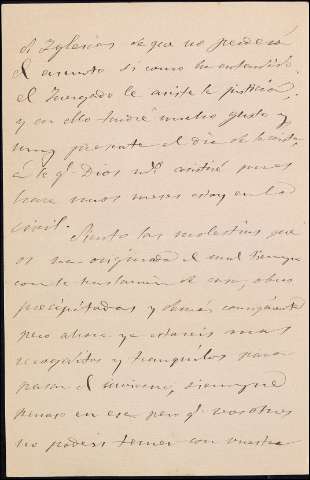 á Iglesias de que no perderá
el asunto si como ha entendido
el Juzgado le asiste la justicia,
y en ello tendré mucho gusto y
muy presente el día de la vista,
á la q. Dios mte asistiré pues
hace unos meses estoy en la
civil.
Siento las molestias que
os ha originado el mal tiempo
con la traslacion de casa, obras
precipitadas y demás consiguiente
pero ahora ya estareis mas
recogidos y tranquilos para
pasar el invierno, siempre
pienso en esa pero q. vosotros
no podeis tener con vuestra